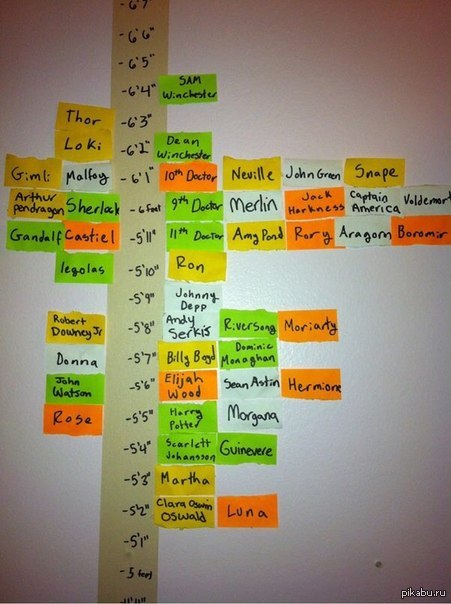 -6'7"
-6'6"
-6'5"
-6'4" SAM Winchester
Thor -6'3"
Loki -6'2" Dean Winchester
Gimli Malfoy -6'1" 10th Doctor Neville John Green Snape
Arthur Pendragon Sherlock -6 feet 9th Doctor Merlin Jack Harkness Captain America Voldemort
Gandalf Castiel -5'11" 11th Doctor Amy Pond Rory Aragorn Boromir
legolas -5'10" Ron
-5'9" Johnny Depp
Robert Downey Jr -5'8" Andy Serkis Riversong Moriarty
Donna -5'7" Billy Boyd Dominic Monaghan
John Watson -5'6" Elijah Wood Sean Astin Hermione
Rose -5'5" Harry Potter Morgana
-5'4" Scarlett Johansson Guinevere
-5'3" Martha
-5'2" Clara Oswin Oswald Luna
-5'1"
-5 feet
pikabu.ru